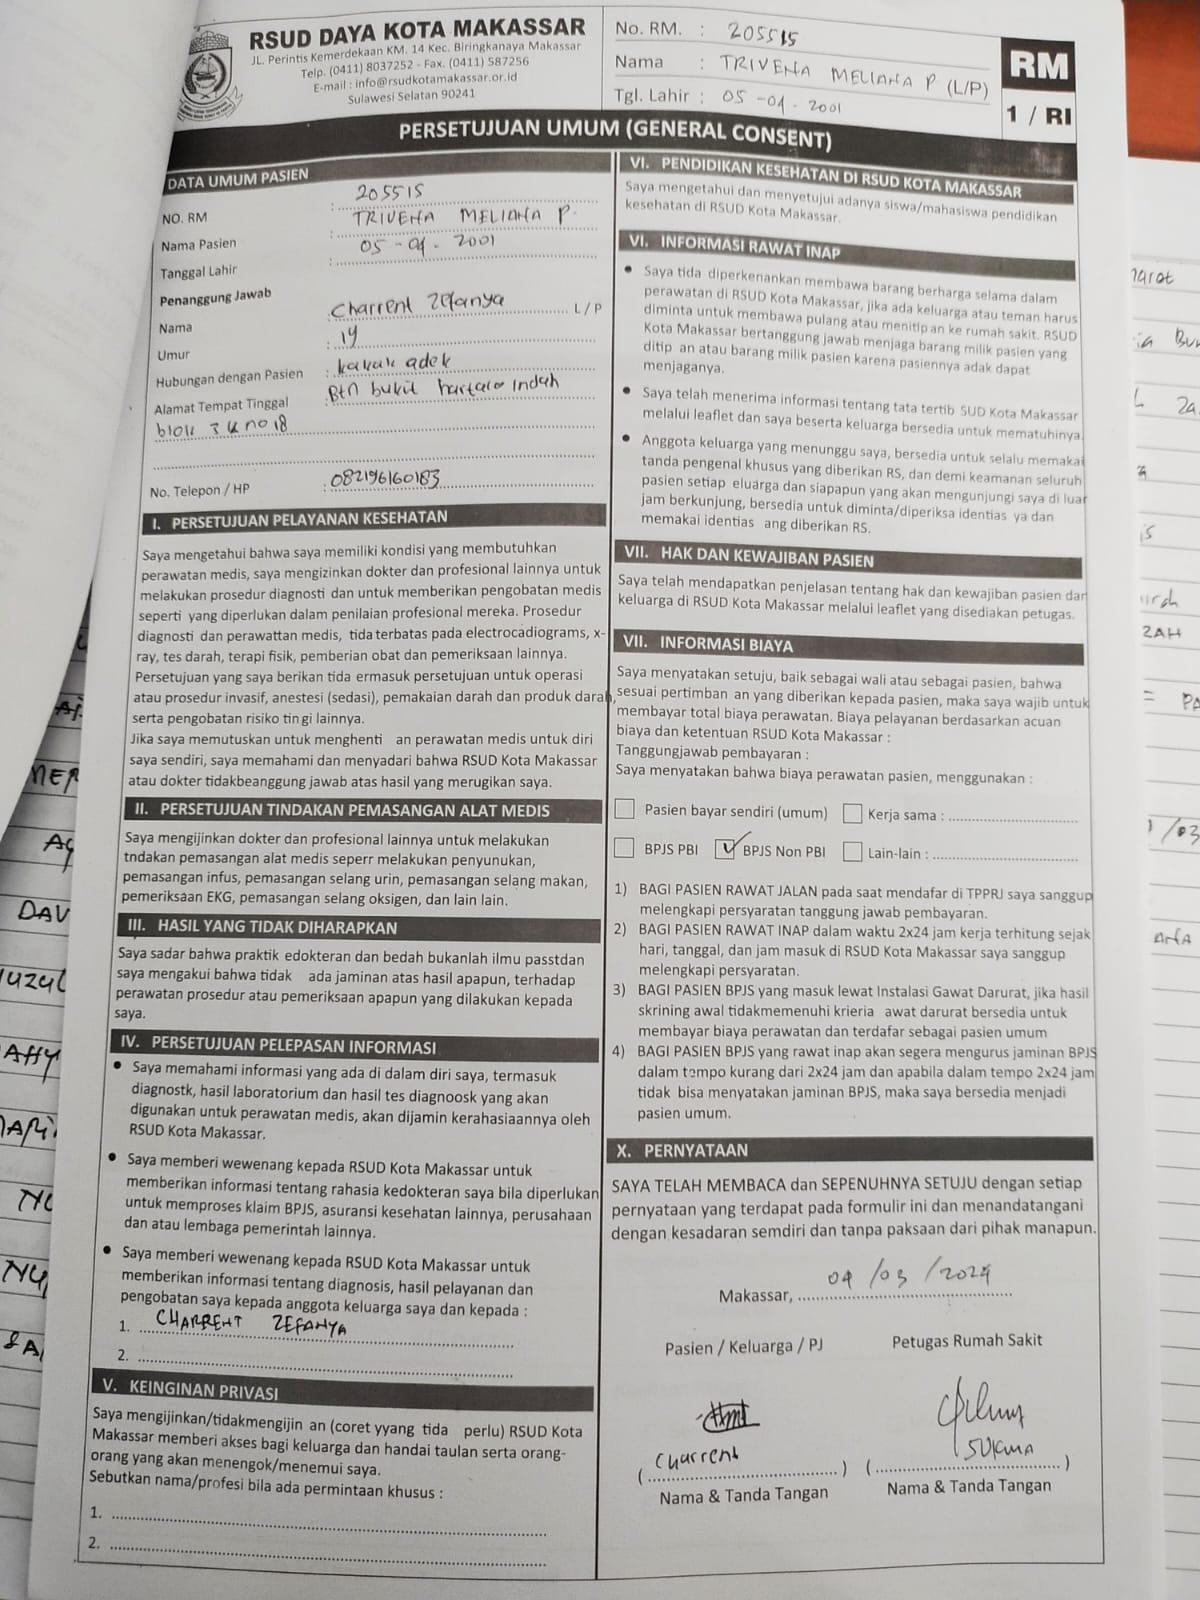 RSUD DAYA KOTA MAKASSAR
JL. Perintis Kemerdekaan KM. 14 Kec. Biringkanaya Makassar
Telp. (0411) 8037252 - Fax. (0411) 587256
E-mail : info@rsudkotamakassar.or.id
Sulawesi Selatan 90241
No. RM. : 205515
Nama : TRIVENA MELIANA P (L/P)
Tgl. Lahir : 05 -04 - 2001
RM
1 / RI
PERSETUJUAN UMUM (GENERAL CONSENT)
DATA UMUM PASIEN
NO. RM : 205515
Nama Pasien : TRIVENA MELIANA P.
Tanggal Lahir : 05 -04 - 2001
Penanggung Jawab
Nama : Charrent Zefanya L/P
Umur : 19
Hubungan dengan Pasien : kakak adek
Alamat Tempat Tinggal : Btn bukit hartaco Indah
blok 3K no 18
No. Telepon / HP : 082196160183
I. PERSETUJUAN PELAYANAN KESEHATAN
Saya mengetahui bahwa saya memiliki kondisi yang membutuhkan
perawatan medis, saya mengizinkan dokter dan profesional lainnya untuk
melakukan prosedur diagnosti dan untuk memberikan pengobatan medis
seperti yang diperlukan dalam penilaian profesional mereka. Prosedur
diagnosti dan perawattan medis, tida terbatas pada electrocadiograms, x-
ray, tes darah, terapi fisik, pemberian obat dan pemeriksaan lainnya.
Persetujuan yang saya berikan tida ermasuk persetujuan untuk operasi
atau prosedur invasif, anestesi (sedasi), pemakaian darah dan produk darah,
serta pengobatan risiko tin gi lainnya.
Jika saya memutuskan untuk menghenti an perawatan medis untuk diri
saya sendiri, saya memahami dan menyadari bahwa RSUD Kota Makassar
atau dokter tidakbeanggung jawab atas hasil yang merugikan saya.
II. PERSETUJUAN TINDAKAN PEMASANGAN ALAT MEDIS
Saya mengijinkan dokter dan profesional lainnya untuk melakukan
tndakan pemasangan alat medis seperr melakukan penyunukan,
pemasangan infus, pemasangan selang urin, pemasangan selang makan,
pemeriksaan EKG, pemasangan selang oksigen, dan lain lain.
III. HASIL YANG TIDAK DIHARAPKAN
Saya sadar bahwa praktik edokteran dan bedah bukanlah ilmu passtdan
saya mengakui bahwa tidak ada jaminan atas hasil apapun, terhadap
perawatan prosedur atau pemeriksaan apapun yang dilakukan kepada
saya.
IV. PERSETUJUAN PELEPASAN INFORMASI
• Saya memahami informasi yang ada di dalam diri saya, termasuk
diagnostk, hasil laboratorium dan hasil tes diagnoosk yang akan
digunakan untuk perawatan medis, akan dijamin kerahasiaannya oleh
RSUD Kota Makassar.
• Saya memberi wewenang kepada RSUD Kota Makassar untuk
memberikan informasi tentang rahasia kedokteran saya bila diperlukan
untuk memproses klaim BPJS, asuransi kesehatan lainnya, perusahaan
dan atau lembaga pemerintah lainnya.
• Saya memberi wewenang kepada RSUD Kota Makassar untuk
memberikan informasi tentang diagnosis, hasil pelayanan dan
pengobatan saya kepada anggota keluarga saya dan kepada :
1. CHARRENT ZEFANYA
2.
V. KEINGINAN PRIVASI
Saya mengijinkan/tidakmengijin an (coret yyang tida perlu) RSUD Kota
Makassar memberi akses bagi keluarga dan handai taulan serta orang-
orang yang akan menengok/menemui saya.
Sebutkan nama/profesi bila ada permintaan khusus :
1.
2.
VI. PENDIDIKAN KESEHATAN DI RSUD KOTA MAKASSAR
Saya mengetahui dan menyetujui adanya siswa/mahasiswa pendidikan
kesehatan di RSUD Kota Makassar.
VI. INFORMASI RAWAT INAP
• Saya tida diperkenankan membawa barang berharga selama dalam
perawatan di RSUD Kota Makassar, jika ada keluarga atau teman harus
diminta untuk membawa pulang atau menitip an ke rumah sakit. RSUD
Kota Makassar bertanggung jawab menjaga barang milik pasien yang
ditip an atau barang milik pasien karena pasiennya adak dapat
menjaganya.
• Saya telah menerima informasi tentang tata tertib SUD Kota Makassar
melalui leaflet dan saya beserta keluarga bersedia untuk mematuhinya.
• Anggota keluarga yang menunggu saya, bersedia untuk selalu memakai
tanda pengenal khusus yang diberikan RS, dan demi keamanan seluruh
pasien setiap eluarga dan siapapun yang akan mengunjungi saya di luar
jam berkunjung, bersedia untuk diminta/diperiksa identias ya dan
memakai identias ang diberikan RS.
VII. HAK DAN KEWAJIBAN PASIEN
Saya telah mendapatkan penjelasan tentang hak dan kewajiban pasien dan
keluarga di RSUD Kota Makassar melalui leaflet yang disediakan petugas.
VII. INFORMASI BIAYA
Saya menyatakan setuju, baik sebagai wali atau sebagai pasien, bahwa
sesuai pertimban an yang diberikan kepada pasien, maka saya wajib untuk
membayar total biaya perawatan. Biaya pelayanan berdasarkan acuan
biaya dan ketentuan RSUD Kota Makassar :
Tanggungjawab pembayaran :
Saya menyatakan bahwa biaya perawatan pasien, menggunakan :
Pasien bayar sendiri (umum) Kerja sama :
BPJS PBI ✓ BPJS Non PBI Lain-lain :
1) BAGI PASIEN RAWAT JALAN pada saat mendafar di TPPRJ saya sanggup
melengkapi persyaratan tanggung jawab pembayaran.
2) BAGI PASIEN RAWAT INAP dalam waktu 2x24 jam kerja terhitung sejak
hari, tanggal, dan jam masuk di RSUD Kota Makassar saya sanggup
melengkapi persyaratan.
3) BAGI PASIEN BPJS yang masuk lewat Instalasi Gawat Darurat, jika hasil
skrining awal tidakmemenuhi krieria awat darurat bersedia untuk
membayar biaya perawatan dan terdafar sebagai pasien umum
4) BAGI PASIEN BPJS yang rawat inap akan segera mengurus jaminan BPJS
dalam tempo kurang dari 2x24 jam dan apabila dalam tempo 2x24 jam
tidak bisa menyatakan jaminan BPJS, maka saya bersedia menjadi
pasien umum.
X. PERNYATAAN
SAYA TELAH MEMBACA dan SEPENUHNYA SETUJU dengan setiap
pernyataan yang terdapat pada formulir ini dan menandatangani
dengan kesadaran semdiri dan tanpa paksaan dari pihak manapun.
Makassar, 04 /03 /2024
Pasien / Keluarga / PJ Petugas Rumah Sakit
( Charrent ) ( SUKMA )
Nama & Tanda Tangan Nama & Tanda Tangan